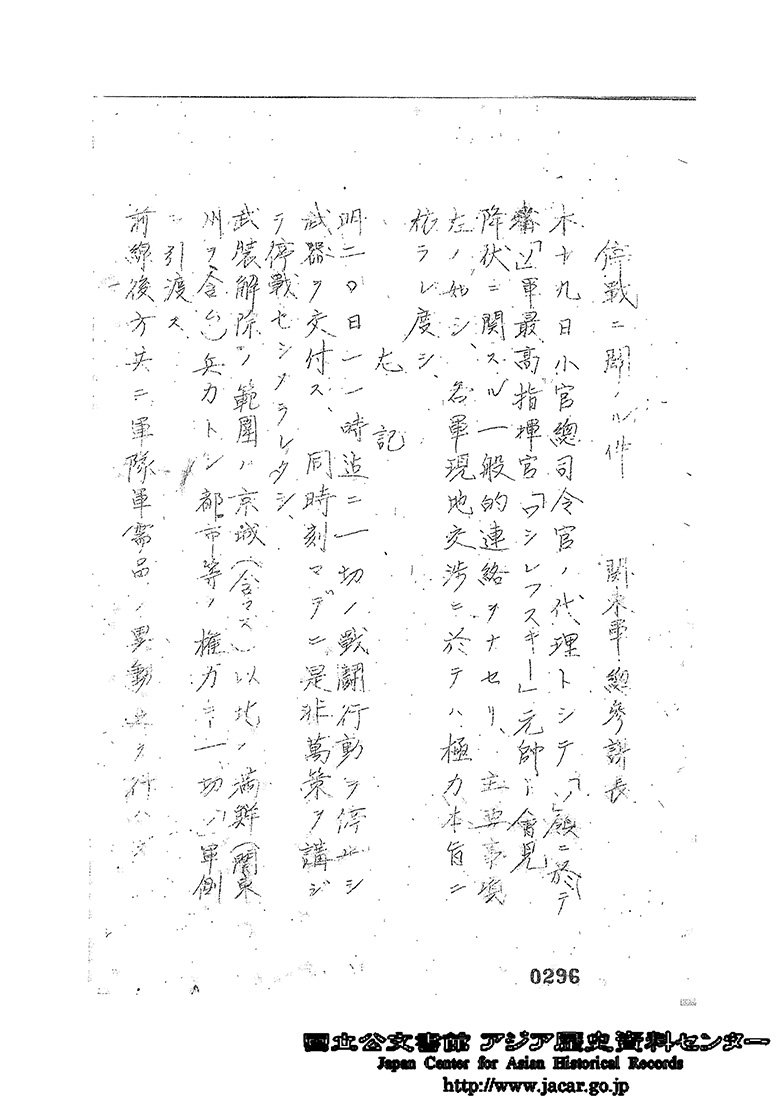 停戰ニ関スル件　関東軍總参謀長
本十九日小官總司令官ノ代理トシテ「ソ」領ニ於テ
「ソ」軍最高指揮官「ワシレフスキー」元帥ト會見
降伏ニ関スル一般的連絡ヲナセリ、主要事項
左ノ如シ、各軍現地交渉ニ於テハ極力本旨ニ
依ラレ度シ、
左記
明二〇日一一時迄ニ一切ノ戰鬪行動ヲ停止シ
武器ヲ交付ス、同時刻マデニ是非萬策ヲ講ジ
テ停戰セシメラレタシ、
武装解除ノ範圍ハ京城（含マズ）以北ノ満鮮（関東
州ヲ含ム）兵力トシ都市等ノ權力モ一切ソ軍側
ニ引渡ス
前線後方共ニ軍隊軍需品ノ異動ヲ行ハズ
0296
国立公文書館 アジア歴史資料センター
Japan Center for Asian Historical Records
http://www.jacar.go.jp